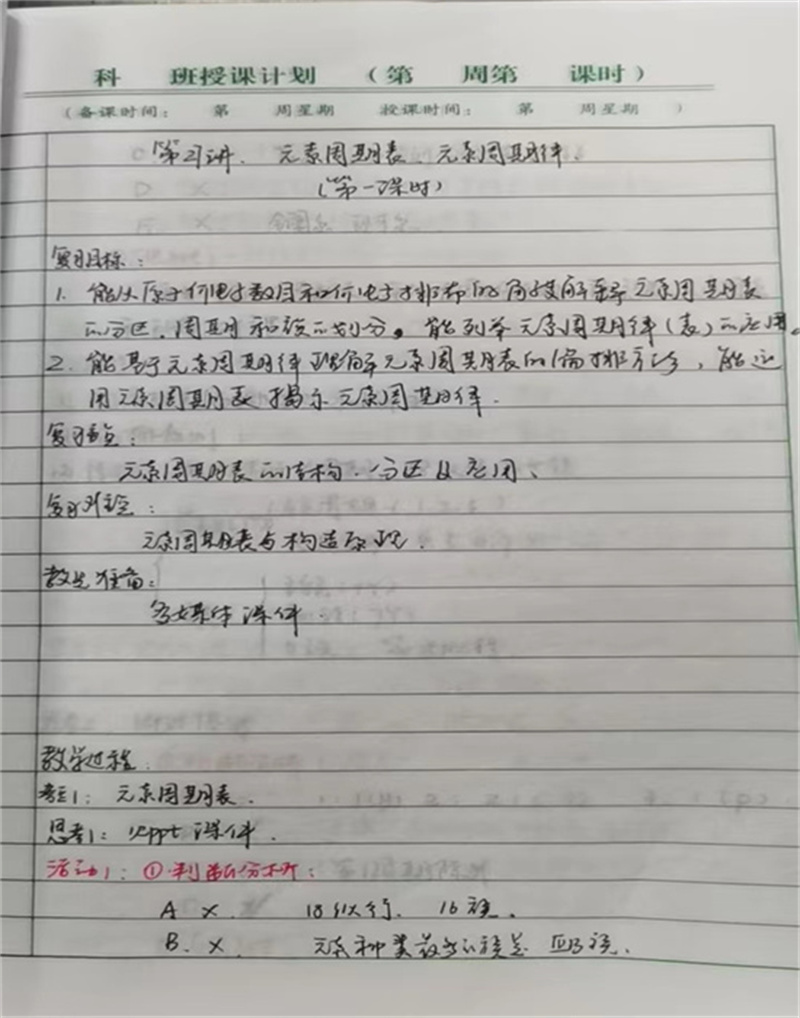 科 班授课计划 (第 周第 课时)
(备课时间: 第 周星期 授课时间: 第 周星期 )
第21讲. 元素周期表、元素周期律.
(第一课时)
复习目标:
1. 能从原子价电子数目和价电子排布的角度解释元素周期表
的分区、周期和族的划分。能列举元素周期律(表)的应用。
2. 能基于元素周期律理解元素周期表的编排方法, 能运
用元素周期表揭示元素周期律.
复习重点:
元素周期表的结构、分区及应用、
复习难点:
元素周期表与构造原理.
教学准备:
多媒体课件.
教学过程.
考点1: 元素周期表.
思考1: 见ppt课件.
活动1: ①判断分析:
A × . 18纵行. 16族.
B. × . 元素种类最多的族是 ⅢB族.